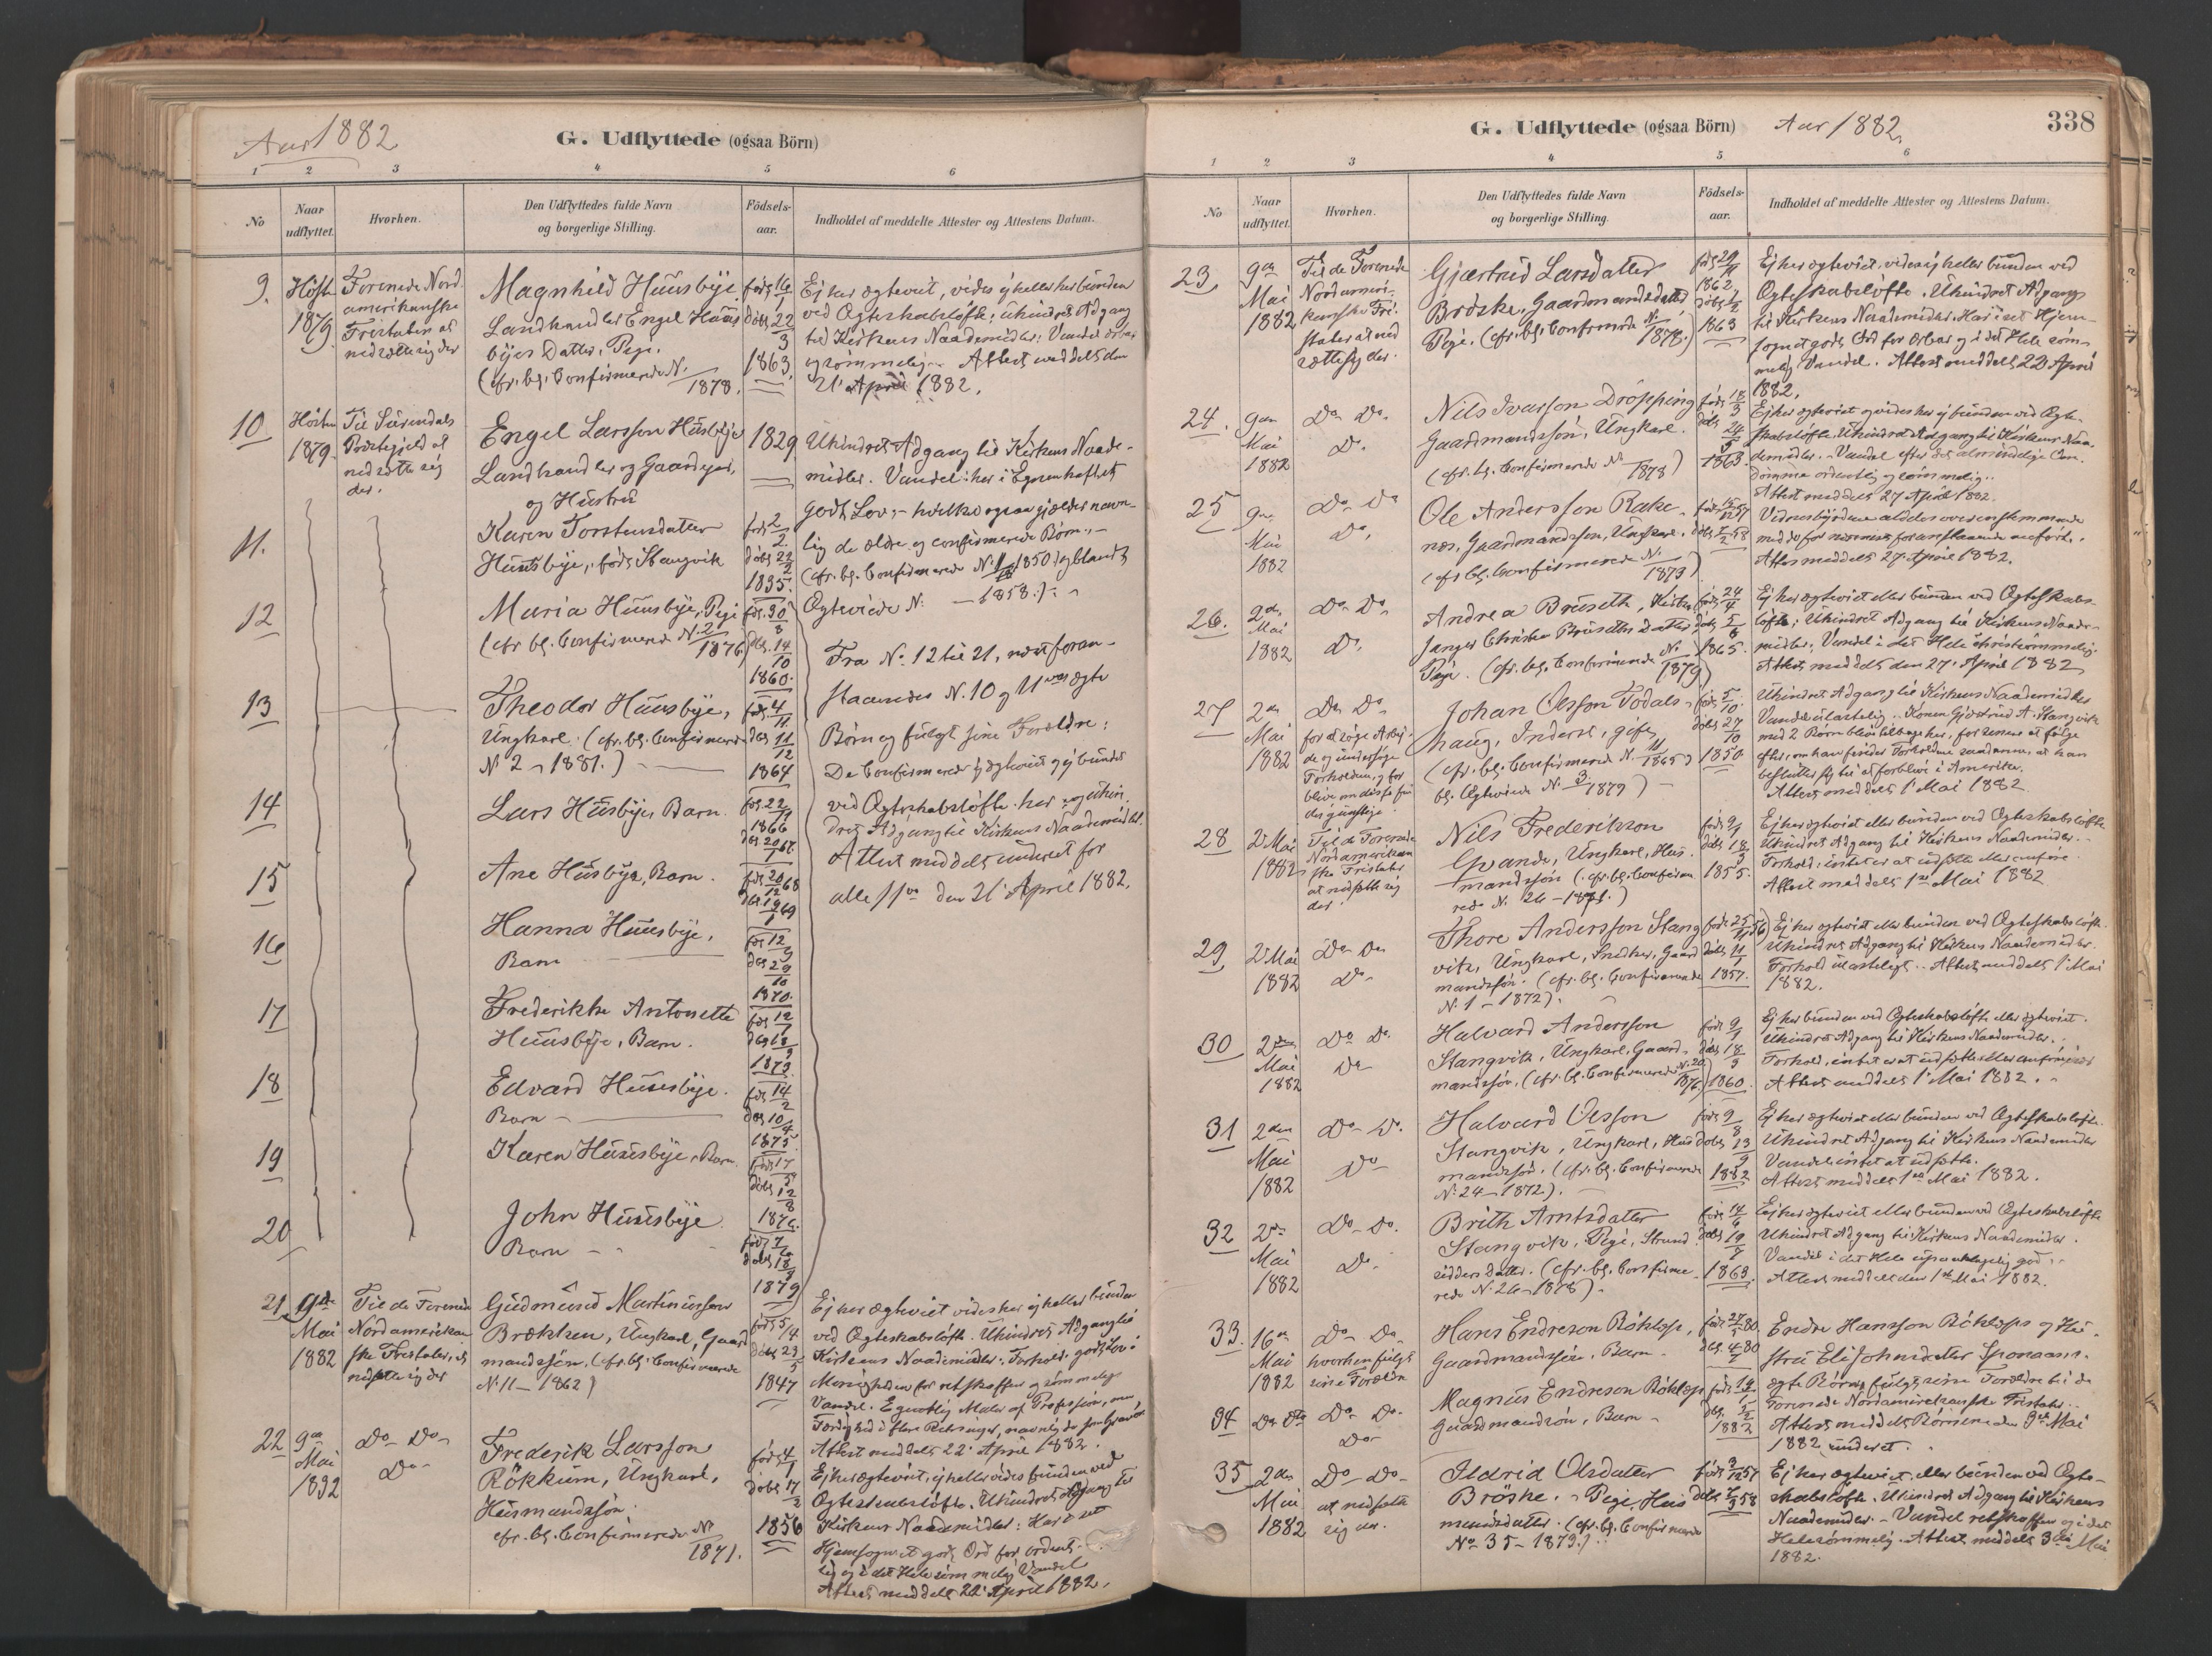 Aar 1882
G. Udflyttede (ogsaa Börn)
1 2 3 4 5 6
No
Naar udflyttet.
Hvorhen.
Den Udflyttedes fulde Navn og borgerlige Stilling.
Födsels-aar.
Indholdet af meddelte Attester og Attestens Datum.
9.
Høst 1879.
Forenede Nord
amerikanske
Fristater at
nedsætte sig der
Magnhild Huusbÿe
Landhandler Engel Huus
bÿes Datter, Pige.
(cfr. bg. Confirmerede N.
1878.
født 16/1
døbt 22/3
1863.
Ej her ægteviet, vides ej heller her bunden
ved Ægteskabsløfte; uhindret Adgang
til Kirkens Naademidler; Vandel ærbar
og sømmelig. Attest meddelt den
21' April 1882.
10
Høsten
1879.
Til Surendals
Præstegjeld at
nedsætte sig
der.
Engel Larsson Husbÿe
Landhandler og Gaardejer,
og Hustru
1829
Uhindret Adgang til Kirkens Naade-
midler. Vandel: her i Egnen havt et
godt Lov; - hvilket ogsaa gjælder navn-
lig de ældre og confirmerede Børn. -
11.
Karen Torstensdatter
Huusbÿe, født Stangvik
født 2/2
døbt 22/2
1835.
(cfr. bg. Confirmerede N. 1850 og blandt
Ægteviede N. - 1858.)
12
Maria Huusbÿe, Pige
(cfr bg. Confirmerede N. 2/1876)
født 30/8
døbt 14/10
1860.
Fra No. 12 til 21, næstforan-
staaendes N. 10 og 11 ægte
Børn og fulgt sine Forældre:
De Confirmerede ej ægteviet og ej bunden
ved Ægteskabsløfte her og uhin
dret Adgang til Kirkens Naademidler.
Attest meddelt underet for
alle 11 den 21' April 1882.
13
Theodor Huusbÿe,
Ungkarl. (cfr. bg. Confirmerede
N 2 - 1881.)
født 4/11
døbt 11/12
1864
14
Lars Husbÿe, Barn.
født 22/11
1866
døbt 20/1 67.
15
Ane Husbÿe, Barn.
født 20/12 68
døbt 19/1 69
16
Hanna Huusbÿe,
Barn
født 12/9
døbt 29/10
1870.
17
Frederikke Antonette
Huusbÿe, Barn.
født 12/7
1873.
18
Edvard Huusbÿe.
Barn
født 14/2
døbt 10/4
1875.
19
Karen Huusbÿe, Barn.
født 17/5
døbt 12/8
1876.
20
John Huusbÿe
Barn
1879
21
9de
Mai
1882
Til de Forenede
Nordamerikan
ske Fristater, at
nedsætte sig der
Gudmund Martinusson
Brækken, Ungkarl, Gaard
mandssøn, (cfr. bg. Confirmerede
N. 11 - 1862)
født 5/4
døbt 23/5
1847
Ej her ægteviet vides her ej heller bunden
ved Ægteskabsløfte. Uhindret Adgang til
Kirkens Naademidler. Forhold: godt Lov i
Menigheden for retskaffen og sømmelig
Vandel. Egentlig Maler af Profession, men
Attest meddelt 22' April 1882.
22
9de
Mai
1882
Do Do
Do
Frederik Larsson
Røkkum, Ungkarl,
Husmandssøn.
cfr. bg. Confirmerede No
1871.
født 4/1
døbt 17/2
1856
Ej her ægteviet, ej heller vides bunden ved
Ægteskabsløfte. Uhindret Adgang til
Kirkens Naademidler: Har i sit
Hjemsogn et godt Ord for ordent-
lig og i det Hele sømmelig Vandel
Attest meddelt 22' April 1882.
G. Udflyttede (ogsaa Börn)
Aar 1882.
338
1 2 3 4 5 6
No
Naar udflyttet.
Hvorhen.
Den Udflyttedes fulde Navn og borgerlige Stilling.
Födsels-aar.
Indholdet af meddelte Attester og Attestens Datum.
23.
9de
Mai
1882
Til de Forenede
Nordameri-
kanske Fri-
stater at ned
sætte sig der.
Gjærtrud Larsdatter
Brøske, Gaardmandsdatter
Pige. (cfr. bg. Confirmerede No 1878.)
1862,
1863
Ej her ægteviet, vides ej heller bunden ved
Ægteskabsløfte. Uhindret Adgang
til Kirkens Naademidler. Har i sit Hjem-
sogn et godt Ord for ærbar og i det Hele søm-
melig Vandel. Attest meddelt 22 April
1882.
24.
9de
Mai
1882
Do Do
Do
Nils Ivarsson Drøpping
Gaardmandssøn, Ungkarl.
(cfr. bg. Confirmerede No 1878)
født 18/3
døbt 24/5
1863.
Ej her ægteviet og vides her ej bunden ved Ægte-
skabsløfte. Uhindret Adgang til Kirkens Naa-
demidler. Vandel efter det almindelige Om-
dømme ordentlig og sømmelig.
Attest meddelt 27 April 1882.
25
9de
Mai
1882
Do Do
Do
Ole Andersson Rake-
næs, Gaardmandssøn, Ungkarl.
(cfr bg. Confirmerede No. 1873)
Vidnesbyrdene aldeles overensstemmende
med de for næstforanstaaende anførte.
Attest meddelt 27 April 1882.
26.
2den
Mai
1882
Do Do
Do
Andrea Bruseth, Kirke
sanger Christen Bruseths Datter,
Pige. (cfr. bg. Confirmerede No 1879)
født 24/4
døbt 5/6
1865.
Ej her ægteviet eller bunden ved Ægteskabs-
løfte; Uhindret Adgang til Kirkens Naade-
midler. Vandel i det Hele christsømmelig.
Attest meddelt den 27' April 1882
27
2den
Mai
1882
Do Do
for at søge Arbej-
de og undersøge
Forholdene, og for
blive om disse fin
des gunstige
Johan Olsson Todals-
haug, Inderst, gift
(cfr. bg. Confirmerede N. 11/1865 og
bg. Ægteviede N. 3/1879)
født 5/10
døbt 27/10
1850
Uhindret Adgang til Kirkens Naademidler
Vandel ulastelig. Konen Gjertrud A. Stangvik
med 2 Børn bliver tilbage her, for senere at følge
efter, om han finder Forholdene saadanne, at han
beslutter sig til at forblive i Amerika.
Attest meddelt 1' Mai 1882.
28
2 Mai
1882
Til de Forenede
Nordamerikan
ske Fristater
at nedsætte sig
der.
Nils Frederikson
Hvande, Ungkarl, Hus-
mandssøn (cfr. bg. Confirme
rede N. 26 - 1871.)
født 9/1
døbt 18/3
1855.
Ej her ægteviet eller bunden ved Ægteskabsløfte
Uhindret Adgang til Kirkens Naademidler.
Forhold, intet er at udsætte eller anføre.
Attest meddelt 1ste Mai 1882
29
2 Mai
1882
Do Do
Do
Thore Andersson Stang
vik, Ungkarl, Snedker, Gaard
mandssøn. (cfr. bg. Confirmerede
N. 1 - 1872).
født 25/11 56
døbt 11/1
1857.
Ej her ægteviet eller bunden ved Ægteskabsløfte.
Uhindret Adgang til Kirkens Naademidler.
Forhold ulasteligt. Attest meddelt 1' Mai
1882.
30
2den
Mai
1882
Do Do
Do
Halvard Andersson
Stangvik, Ungkarl, Gaard-
mandssøn, (cfr. bg. Confirmerede N. 20/1876)
født 9/9
1860.
Ej her bunden ved Ægteskabsløfte eller ægteviet.
Uhindret Adgang til Kirkens Naademidler.
Forhold, intet er at udsætte eller anføre
Attest meddelt 1' Mai 1882.
31
2den
Mai
1882
Do Do
Do
Halvard Olsson
Stangvik, Ungkarl, Hus
mandssøn. (cfr. bg. Confirmerede
N. 24 - 1872).
født 9/8
døbt 13/9
Ej her ægteviet eller bunden ved Ægteskabsløfte.
Uhindret Adgang til Kirkens Naademidler
Vandel, intet at udsætte.
Attest meddelt 1ste Mai 1882.
32
2den
Mai
1882
Do Do
Do
Brith Arntsdatter
Stangvik, Pige, Strand
sidders Datter. (cfr. bg. Confirme-
rede N. 26 - 1878).
født 14/6
døbt 19/7
1863.
Ej her ægteviet eller bunden ved Ægteskabsløfte
Uhindret Adgang til Kirkens Naademidler.
Vandel i det Hele upaaklagelig god.
Attest meddelt den 1ste Mai 1882.
33.
16de
Mai
1882
Do Do
hvorhen fulgt
sine Forældre
Hans Endreson Bøklep,
Gaardmandssøn, Barn
Endre Hansson Bøkleps og Hu-
stru Eli Johnsdatter
ægte Børn, fulgt sine Forældre til de
Forenede Nordamerikanske Fristater.
Attest meddelt Børnene den 9de Mai
1882 underet.
34
Do Dto
Do Do
Do
Magnus Endreson Bøklep
Gaardmandssøn, Barn
1882
35
2den
Mai
1882
Do Do
at nedsætte
sig der.
Ildrid Olsdatter
Brøske, Pige, Hus
mandsdatter. (cfr. bg. Confirmerede
No 35 - 1873.)
Ej her ægteviet, eller bunden ved Ægte-
skabsløfte. Uhindret Adgang til Kirkens
Naademidler. Vandel retskaffen og i det
Hele sømmelig. Attest meddelt 3die Mai
1882.